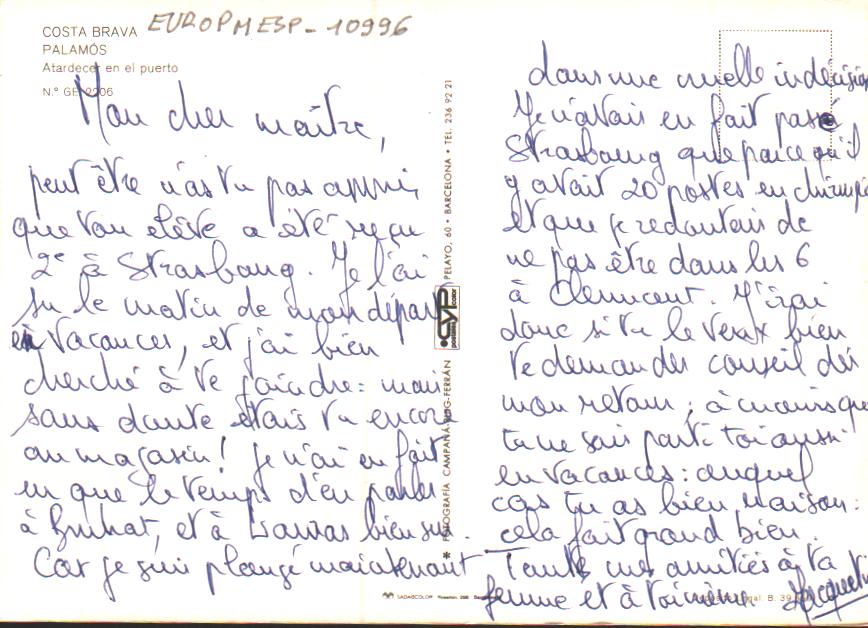 EUROPMESP-10996
COSTA BRAVA
PALAMÓS
Atardecer en el puerto
N.º GE 2206
Mon cher maître,
peut être n'as tu pas appris
que ton élève a été reçu
2e à Strasbourg. Je l'ai
su le matin de mon départ
en vacances, et j'ai bien
cherché à te joindre : mais
sans doute étais tu encore
au magasin ! Je n'ai en fait
eu que le temps d'en parler
à Bruhat, et à bien sur.
Car je suis plongé maintenant
dans une cruelle indécision
Je n'avais en fait passé
Strasbourg que parce qu'il
y avait 20 postes en chirurgie
et que je redoutais de
ne pas être dans les 6
à Clermont. J'irai
donc si tu le veux bien
te demander conseil dès
mon retour ; à moins que
tu ne sois parti toi aussi
en vacances : auquel
cas tu as bien raison :
cela fait grand bien.
Toutes mes amitiés à ta
femme et à toi même Jacques
PELAYO, 60 • BARCELONA • TEL. 236 92 21
CYP
color
✱ FOTOGRAFÍA CAMPAÑÁ-PUIG-FERRÁN
SADAGCOLOR
Legal. B. 39